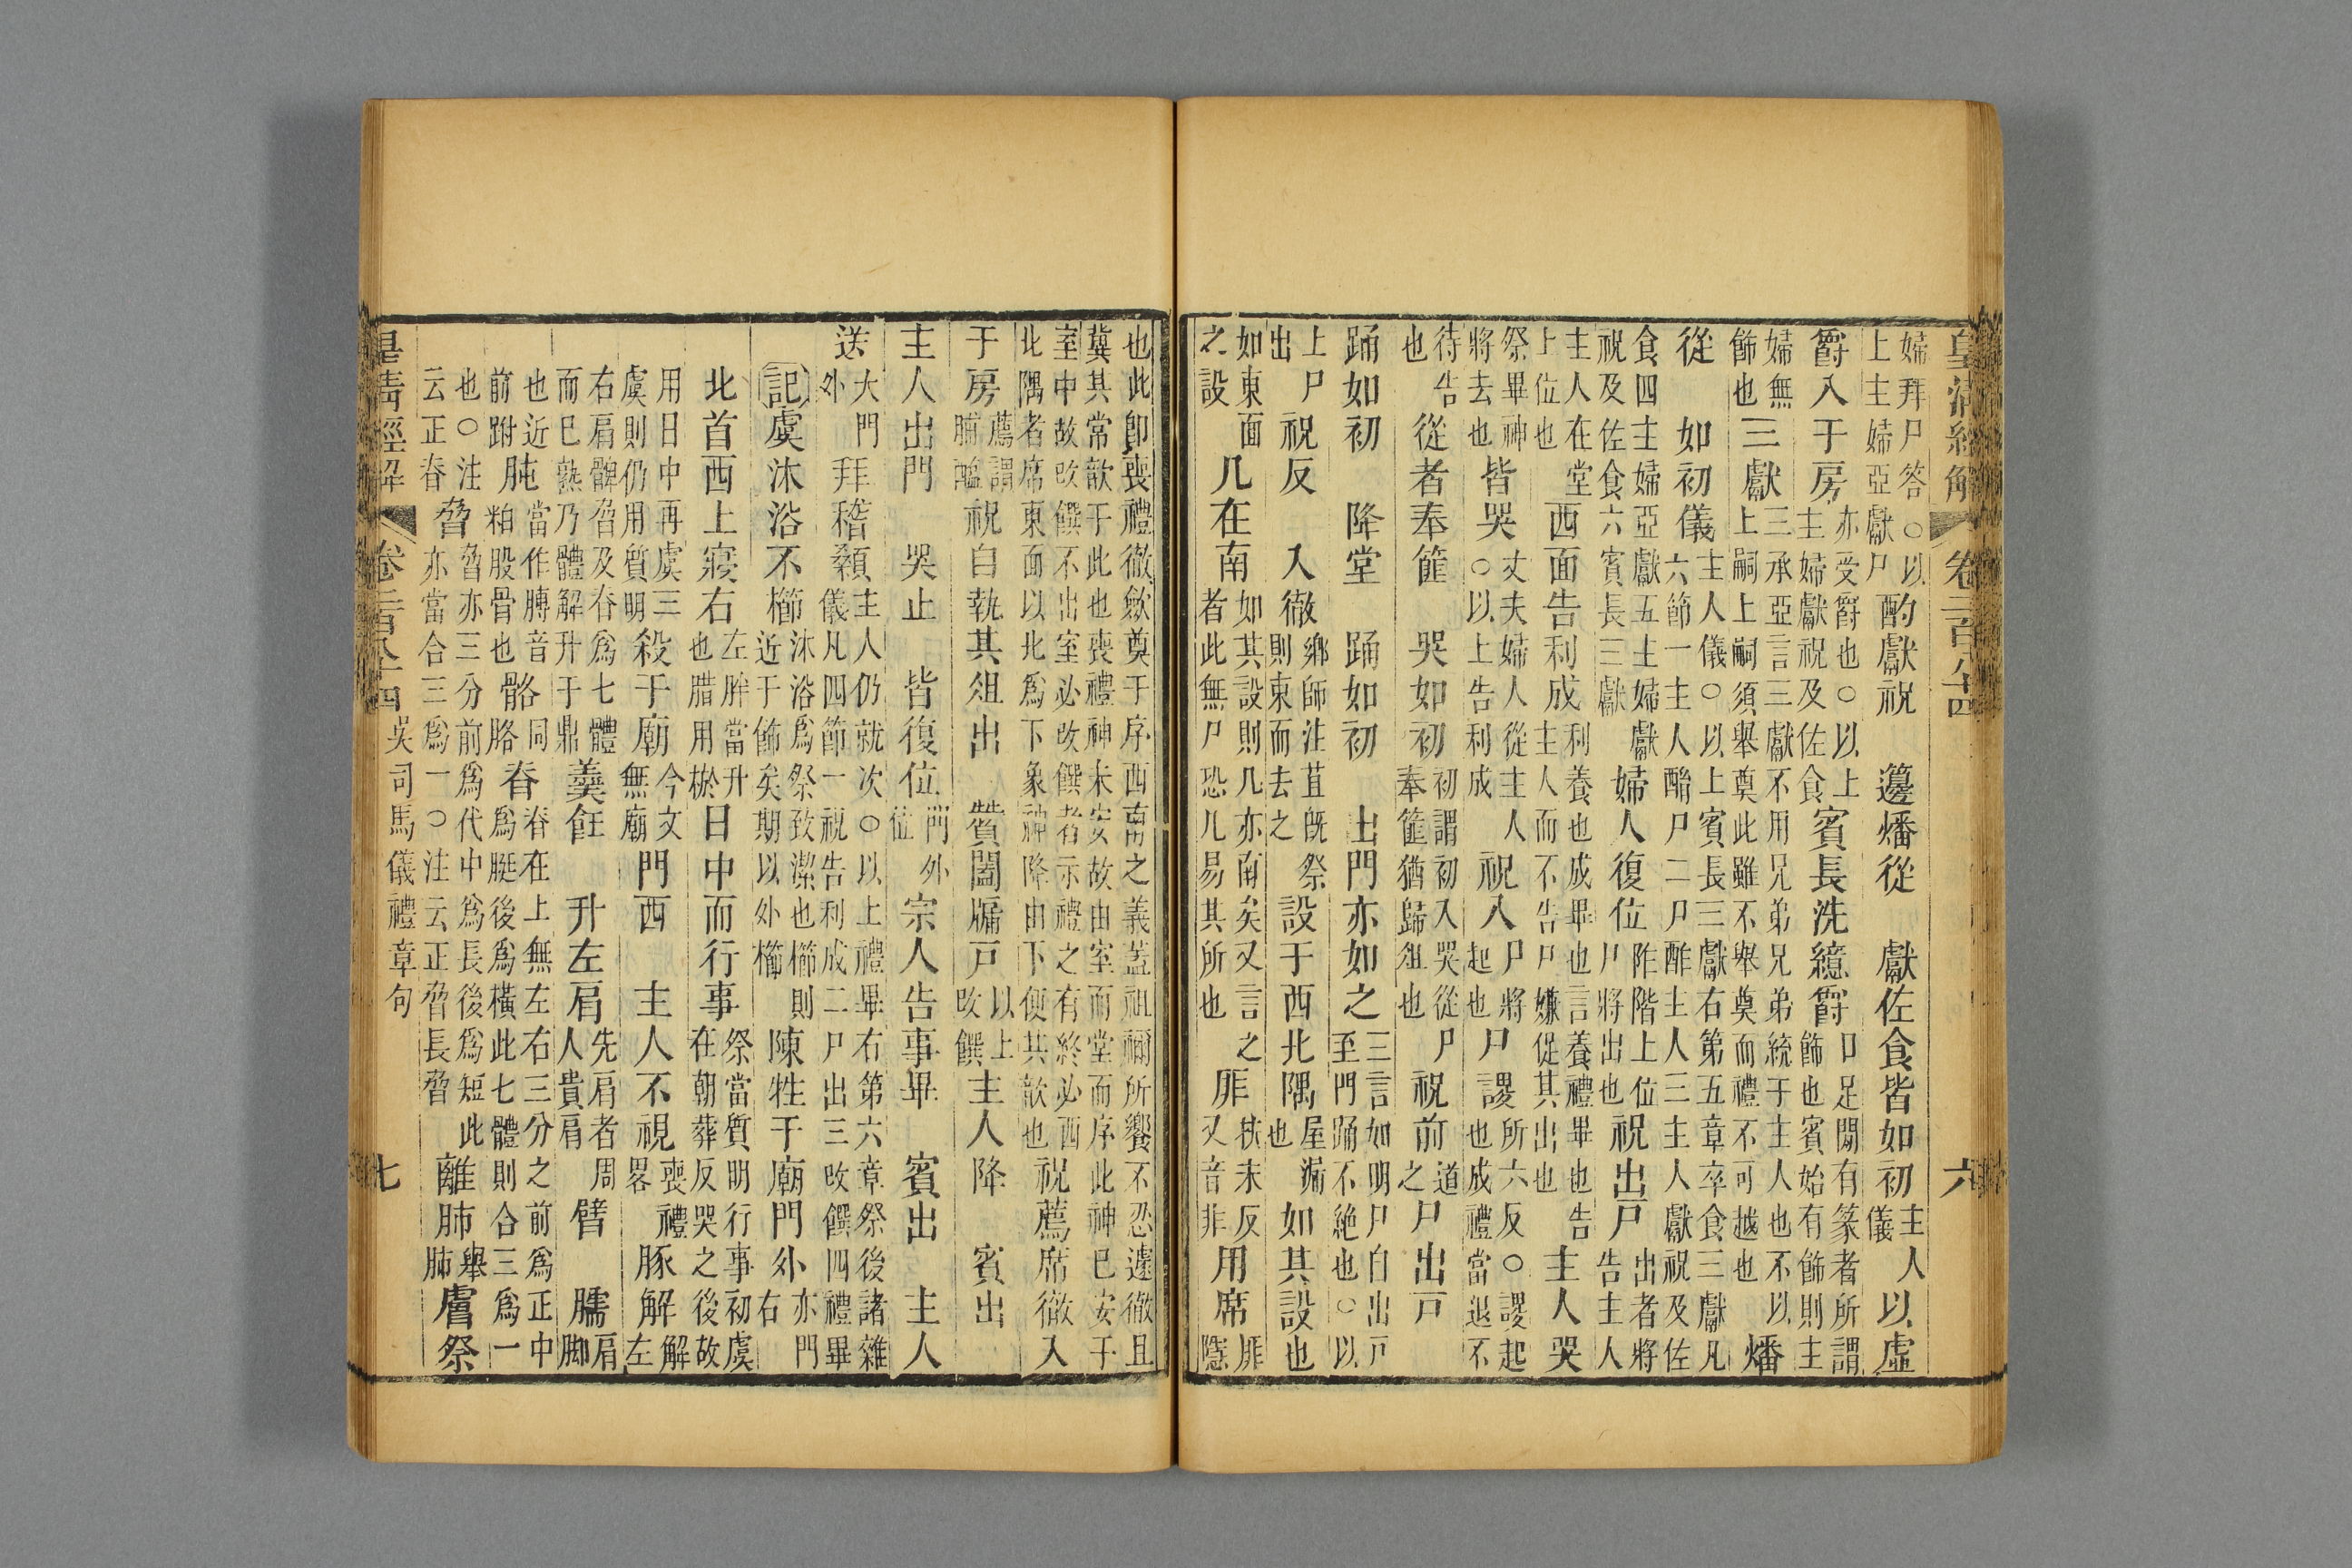 皇清經解 卷二百八十四 六
婦拜尸答○以上主婦亞獻尸酌獻祝 籩燔從 獻佐食皆如初主人儀以虛
爵入于房亦受爵也○以上主婦獻祝及佐食賓長洗繶爵口足閒有篆者所謂飾也賓始有飾則主
婦無飾也三獻三承亞言三獻不用兄弟兄弟統于主人也不以上嗣上嗣須舉奠此雖不舉奠而禮不可越也燔
從 如初儀主人儀○以上賓長三獻右第五章卒食三獻凡六節一主人酳尸二尸酢主人三主人獻祝及佐
食四主婦亞獻五主婦獻祝及佐食六賓長三獻婦人復位阼階上位尸將出也祝出戶出者將告主人
主人在堂上位也西面告利成利養也成畢也言養禮畢也告主人而不告尸嫌促其出也主人哭
祭畢神將去也皆哭丈夫婦人從主人○以上告利成祝入尸將起也尸謖所六反○謖起也成禮當退不
待告也從者奉篚 哭如初初謂初入哭從尸奉篚猶歸俎也祝前道之尸出戶
踊如初 降堂 踊如初 出門亦如之三言如明尸自出戶至門踊不絶也○以
上尸出祝反 入徹鄉師注苴既祭則東而去之設于西北隅屋漏也如其設也
如東面之設几在南如其設則几亦南矣又言之者此無尸恐几易其所也厞扶未反又音非用席厞隱
也此卽喪禮徹斂奠于序西南之義蓋祖禰所饗不忍遽徹且冀其常歆于此也喪禮神未安故由室而堂而序此神已安于
室中故改饌不出室必改饌者示禮之有終必西北隅者席東面以北爲下象神降由下便其歆也祝薦席徹入
于房薦謂脯醢祝自執其俎出 贊闔牖戶以上改饌主人降 賓出
主人出門 哭止 皆復位門外位宗人告事畢 賓出 主人
送大門外拜稽顙主人仍就次○以上禮畢右第六章祭後諸雜儀凡四節一祝告利成二尸出三改饌四禮畢
記虞沐浴不櫛沐浴爲祭致潔也櫛則近于飾矣期以外櫛陳牲于廟門外亦門右
北首西上寢右左胖當升也腊用棜日中而行事祭當質明行事初虞在朝葬反哭之後故
用日中再虞三虞則仍用質明殺于廟今文無廟門西 主人不視喪禮畧豚解解左
右肩髀脅及脊爲七體而已熟乃體解升于鼎羹飪 升左肩先肩者周人貴肩臂 臑肩脚
也近前跗肫當作膊音粕股骨也骼同胳脊脊在上無左右三分之前爲正中爲脡後爲橫此七體則合三爲一
也○注云正脊脅脅亦三分前爲代中爲長後爲短此亦當合三爲一○注云正脅長脅離肺舉肺膚祭
皇清經解 卷二百八十四 吳司馬儀禮章句 七